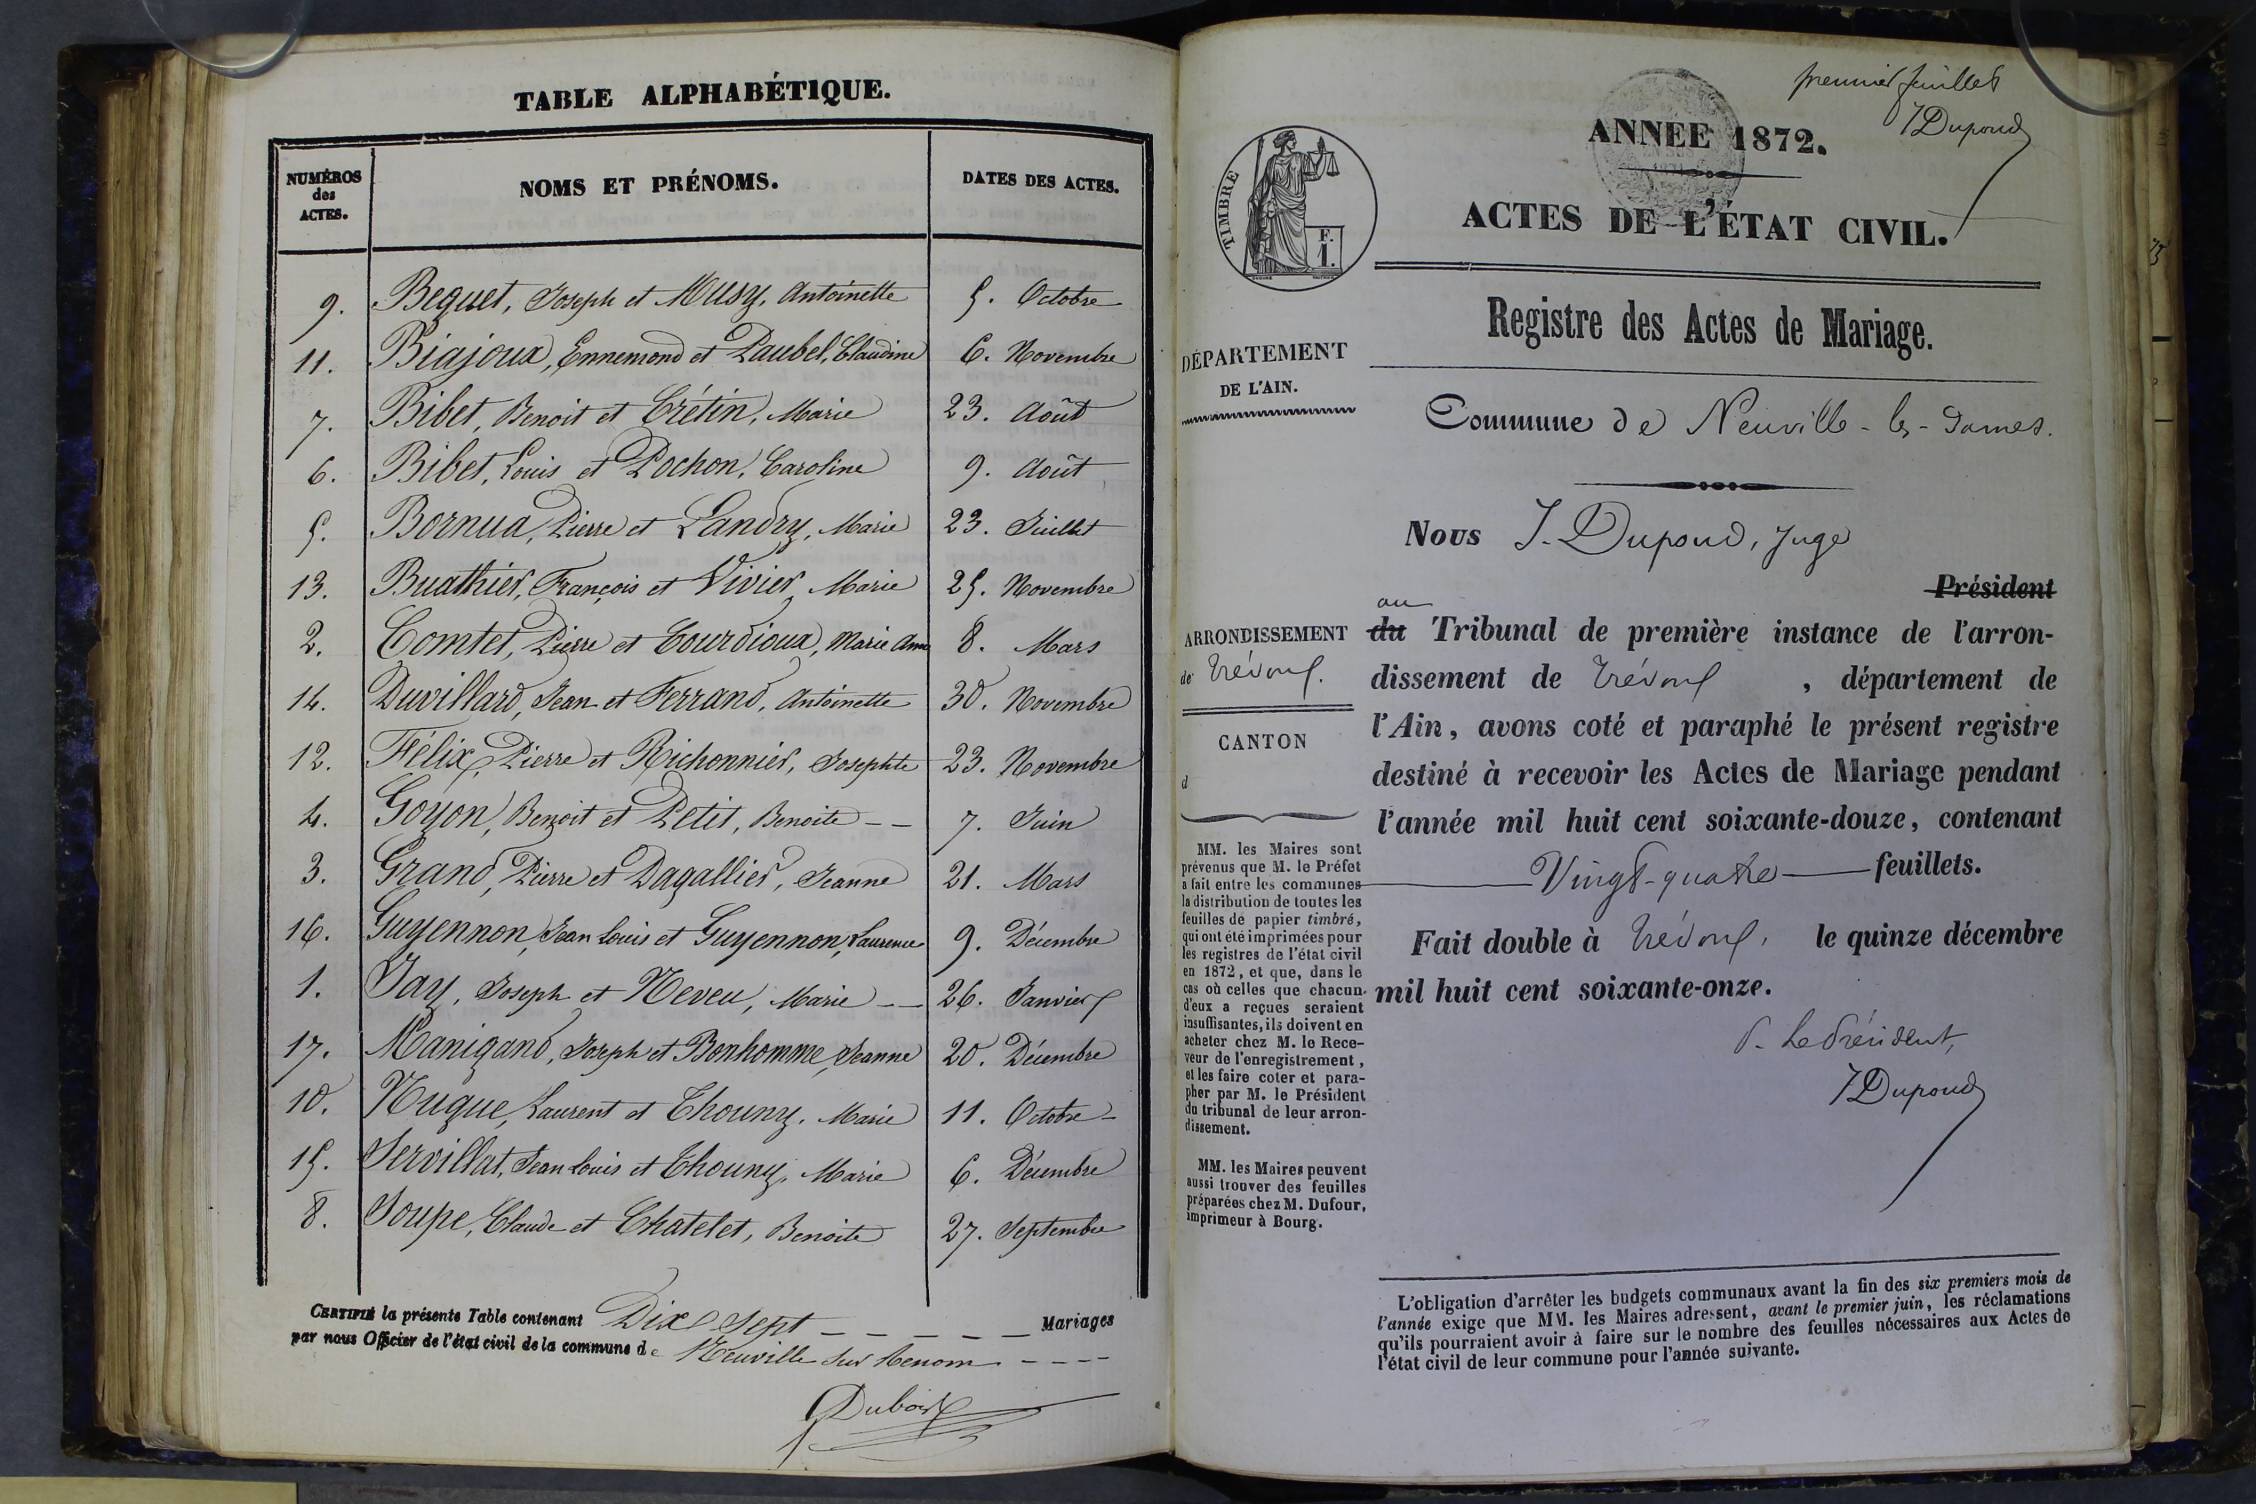 TABLE ALPHABÉTIQUE.
NUMÉROS des ACTES. NOMS ET PRÉNOMS. DATES DES ACTES.
9. Bequet, Joseph et Musy, Antoinette 5. Octobre
11. Biajoux, Ennemond et Paubel, Claudine 6. Novembre
7. Bibet, Benoit et Crétin, Marie 23. Août
6. Bibet, Louis et Pochon, Caroline 9. Août
5. Bornua, Pierre et Landry, Marie 23. Juillet
13. Buathier, François et Vivier, Marie 25. Novembre
2. Comtet, Pierre et Tourdioux, Marie Anne 8. Mars
14. Duvillard, Jean et Ferrand, Antoinette 30. Novembre
12. Félix, Pierre et Richonnier, Josephte 23. Novembre
4. Goyon, Benoit et Petit, Benoite - - 7. Juin
3. Grand, Pierre et Dagallier, Jeanne 21. Mars
16. Guyennon, Jean Louis et Guyennon, Laurence 9. Décembre
1. Jay, Joseph et Neveu, Marie - - 26. Janvier
17. Manigand, Joseph et Bonhomme, Jeanne 20. Décembre
10. Nugue, Laurent et Thouny, Marie 11. Octobre
15. Servillat, Jean Louis et Thouny, Marie 6. Décembre
8. Soupe, Claude et Chatelet, Benoite 27. Septembre
CERTIFIÉ la présente Table contenant Dix Sept - - - - - Mariages
par nous Officier de l'état civil de la commune de Neuville sur Renom - - - -
Dubois
premier feuillet
J Dupoud
ANNÉE 1872.
TIMBRE
F.
1.
ACTES DE L'ÉTAT CIVIL.
Registre des Actes de Mariage.
DÉPARTEMENT
DE L'AIN.
Commune de Neuville-les-Dames.
Nous J. Dupoud, Juge
Président
au
du Tribunal de première instance de l'arron-
dissement de Trévoux, département de
l'Ain, avons coté et paraphé le présent registre
destiné à recevoir les Actes de Mariage pendant
l'année mil huit cent soixante-douze, contenant
Vingt-quatre feuillets.
Fait double à Trévoux, le quinze décembre
mil huit cent soixante-onze.
P. Le Président,
J Dupoud
ARRONDISSEMENT
de Trévoux.
CANTON
d
MM. les Maires sont
prévenus que M. le Préfet
a fait entre les communes
la distribution de toutes les
feuilles de papier timbré,
qui ont été imprimées pour
les registres de l'état civil
en 1872, et que, dans le
cas où celles que chacun
d'eux a reçues seraient
insuffisantes, ils doivent en
acheter chez M. le Rece-
veur de l'enregistrement,
et les faire coter et para-
pher par M. le Président
du tribunal de leur arron-
dissement.
MM. les Maires peuvent
aussi trouver des feuilles
préparées chez M. Dufour,
imprimeur à Bourg.
L'obligation d'arrêter les budgets communaux avant la fin des six premiers mois de
l'année exige que MM. les Maires adressent, avant le premier juin, les réclamations
qu'ils pourraient avoir à faire sur le nombre des feuilles nécessaires aux Actes de
l'état civil de leur commune pour l'année suivante.